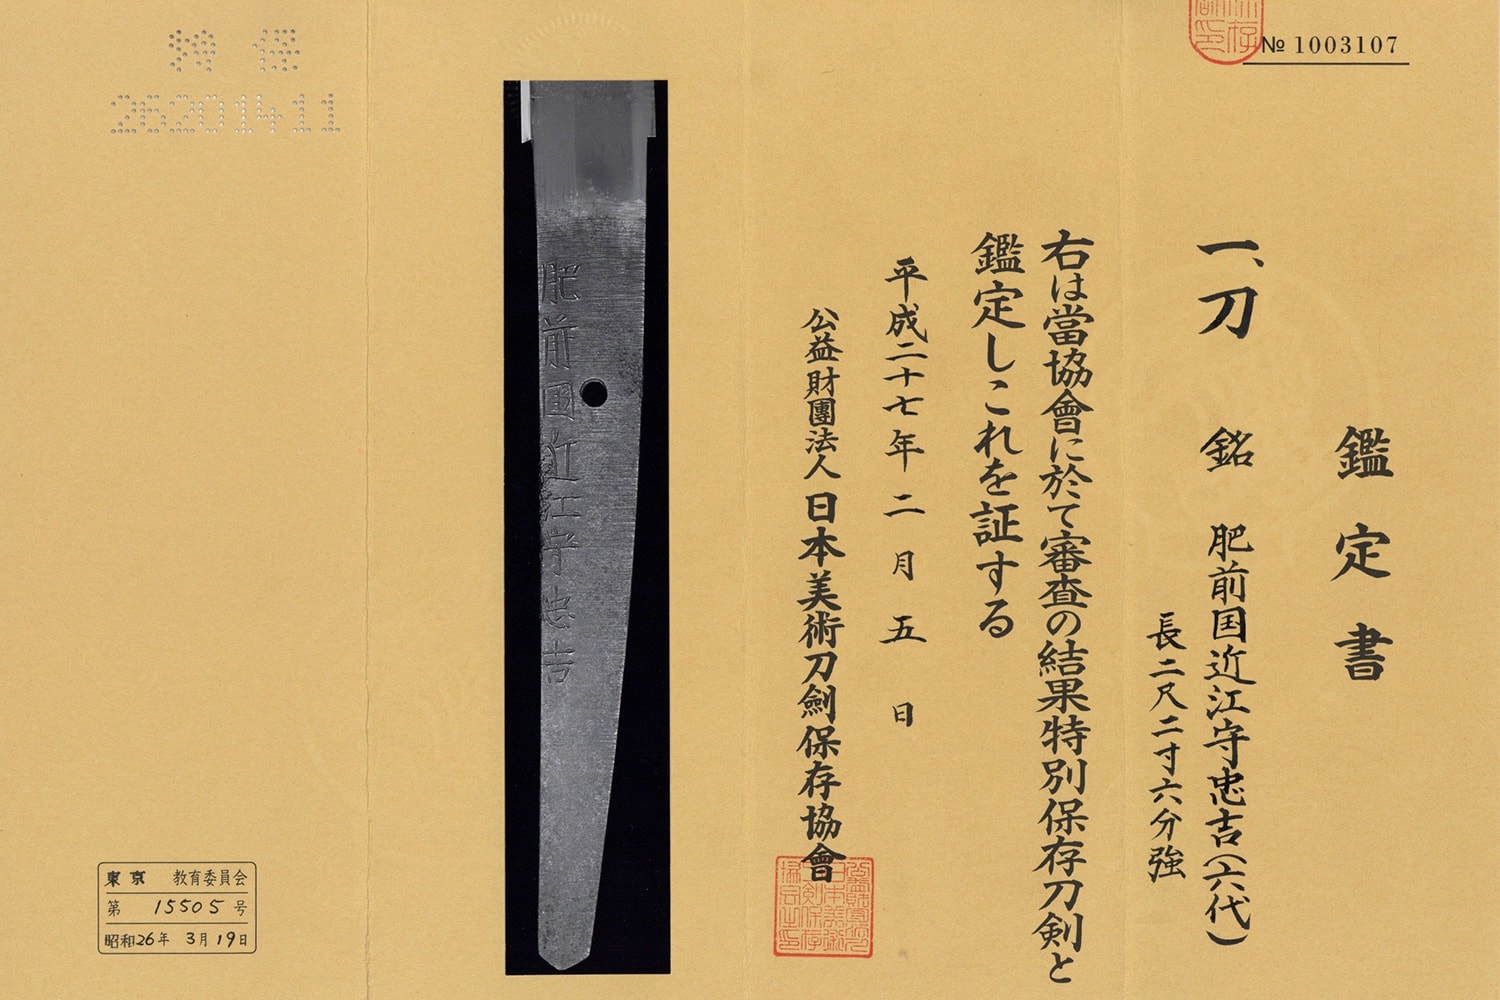 № 1003107
鑑定書
一、刀 銘 肥前国近江守忠吉(六代)
長二尺二寸六分強
右は當協會に於て審査の結果特別保存刀剣と
鑑定しこれを証する
平成二十七年二月五日
公益財團法人日本美術刀劍保存協會
肥前国近江守忠吉
特保
26201411
東京 教育委員会
第 15505 号
昭和26年 3月19日